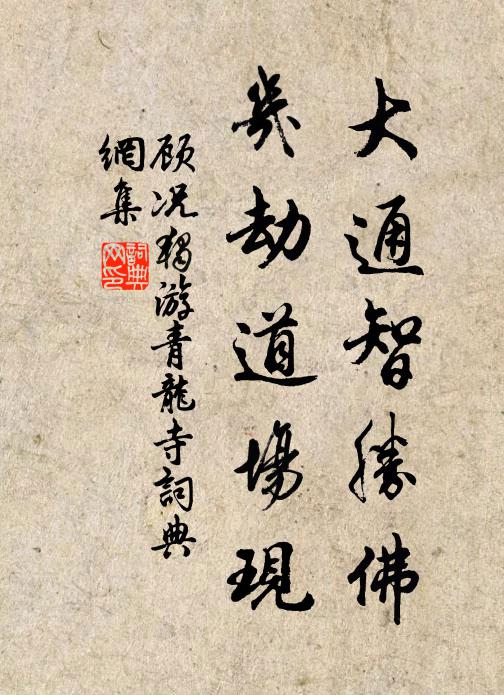 大通智勝佛
幾劫道場現
顾况獨游青龍寺詞典
網集
詞典
网印